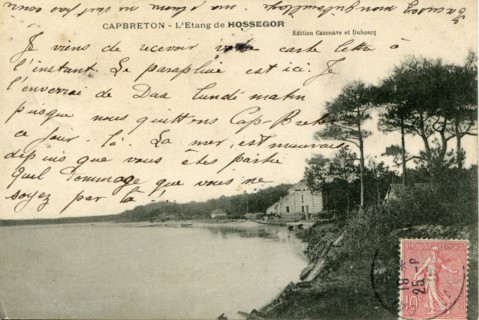 CAPBRETON - L'Etang de HOSSEGOR
Edition Cazenave et Duboscq
Je viens de recevoir votre carte lettre à
l'instant. Le parapluie est ici. Je
l'enverrai de Dax lundi matin
puisque nous quittons Cap-Breton
ce jour-là. La mer est mauvaise
depuis que vous êtes partie
Quel dommage que vous ne
soyez par là
10